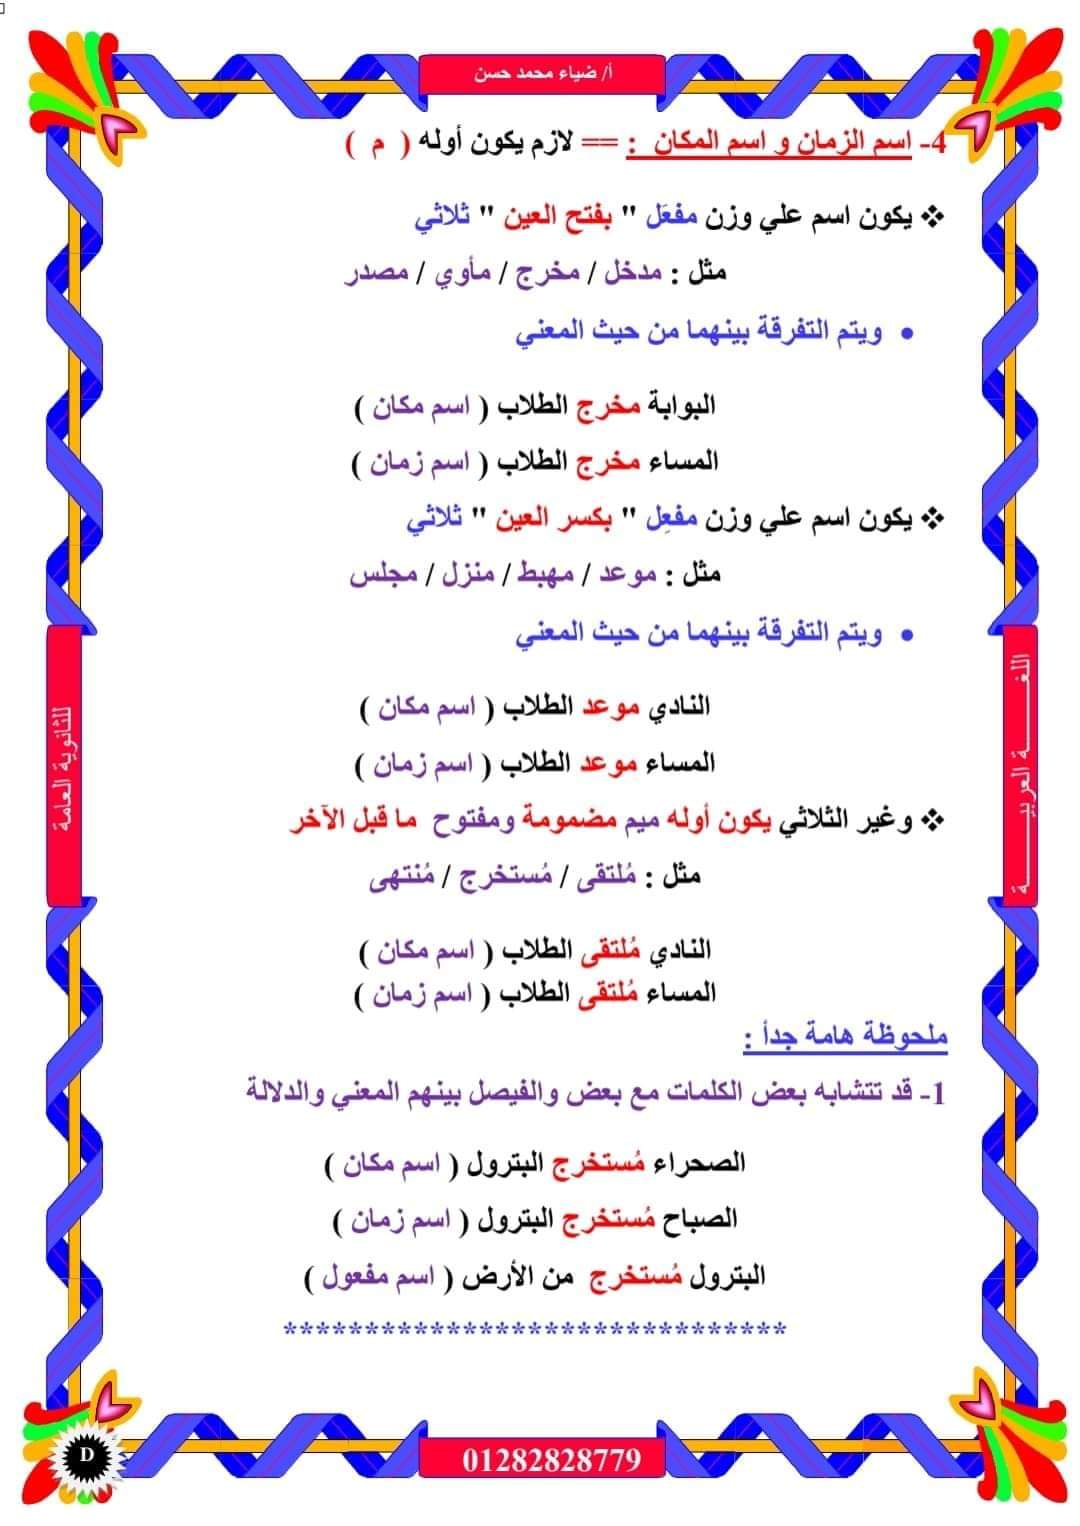 أ/ ضياء محمد حسن
4- اسم الزمان و اسم المكان : == لازم يكون أوله ( م )
❖ يكون اسم علي وزن مفعَل " بفتح العين " ثلاثي
مثل : مدخل / مخرج / مأوي / مصدر
• ويتم التفرقة بينهما من حيث المعني
البوابة مخرج الطلاب ( اسم مكان )
المساء مخرج الطلاب ( اسم زمان )
❖ يكون اسم علي وزن مفعِل " بكسر العين " ثلاثي
مثل : موعد / مهبط / منزل / مجلس
• ويتم التفرقة بينهما من حيث المعني
النادي موعد الطلاب ( اسم مكان )
المساء موعد الطلاب ( اسم زمان )
❖ وغير الثلاثي يكون أوله ميم مضمومة ومفتوح ما قبل الآخر
مثل : مُلتقى / مُستخرج / مُنتهى
النادي مُلتقى الطلاب ( اسم مكان )
المساء مُلتقى الطلاب ( اسم زمان )
ملحوظة هامة جدأ :
1- قد تتشابه بعض الكلمات مع بعض والفيصل بينهم المعني والدلالة
الصحراء مُستخرج البترول ( اسم مكان )
الصباح مُستخرج البترول ( اسم زمان )
البترول مُستخرج من الأرض ( اسم مفعول )
*******************************
اللغـــــــة العربيـــــــة
للثانوية العامة
01282828779
D